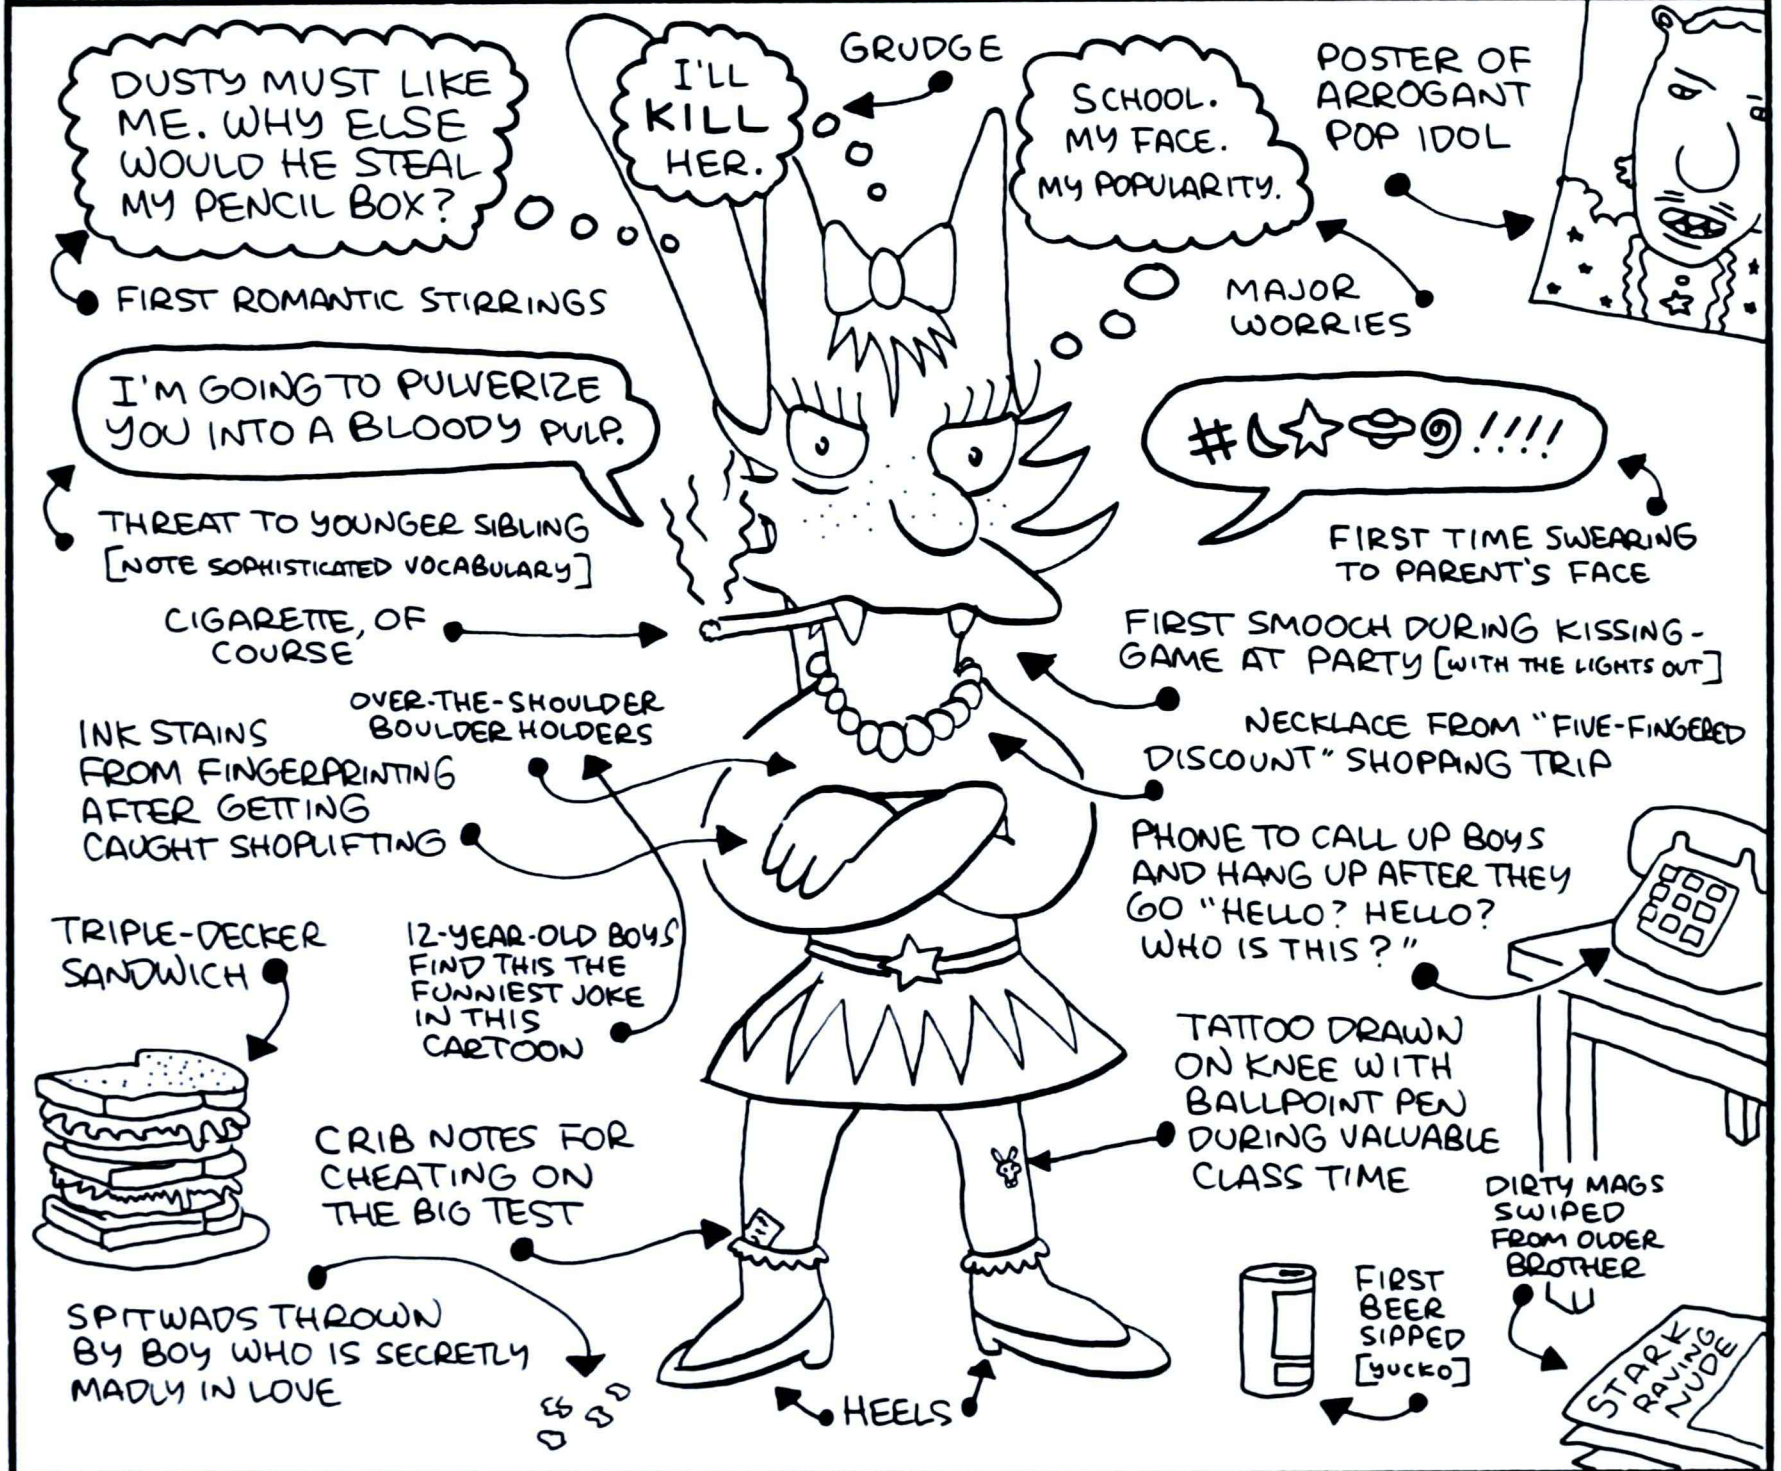 DUSTY MUST LIKE
ME. WHY ELSE
WOULD HE STEAL
MY PENCIL BOX?
FIRST ROMANTIC STIRRINGS
I'LL
KILL
HER.
GRUDGE
SCHOOL.
MY FACE.
MY POPULARITY.
MAJOR
WORRIES
POSTER OF
ARROGANT
POP IDOL
I'M GOING TO PULVERIZE
YOU INTO A BLOODY PULP.
THREAT TO YOUNGER SIBLING
[NOTE SOPHISTICATED VOCABULARY]
#☾☆🪐🌀!!!!
FIRST TIME SWEARING
TO PARENT'S FACE
CIGARETTE, OF
COURSE
FIRST SMOOCH DURING KISSING-
GAME AT PARTY [WITH THE LIGHTS OUT]
OVER-THE-SHOULDER
BOULDER HOLDERS
NECKLACE FROM "FIVE-FINGERED
DISCOUNT" SHOPPING TRIP
INK STAINS
FROM FINGERPRINTING
AFTER GETTING
CAUGHT SHOPLIFTING
PHONE TO CALL UP BOYS
AND HANG UP AFTER THEY
GO "HELLO? HELLO?
WHO IS THIS?"
TRIPLE-DECKER
SANDWICH
12-YEAR-OLD BOYS
FIND THIS THE
FUNNIEST JOKE
IN THIS
CARTOON
TATTOO DRAWN
ON KNEE WITH
BALLPOINT PEN
DURING VALUABLE
CLASS TIME
CRIB NOTES FOR
CHEATING ON
THE BIG TEST
DIRTY MAGS
SWIPED
FROM OLDER
BROTHER
SPITWADS THROWN
BY BOY WHO IS SECRETLY
MADLY IN LOVE
HEELS
FIRST
BEER
SIPPED
[YUCKO]
STARK
RAVING
NUDE